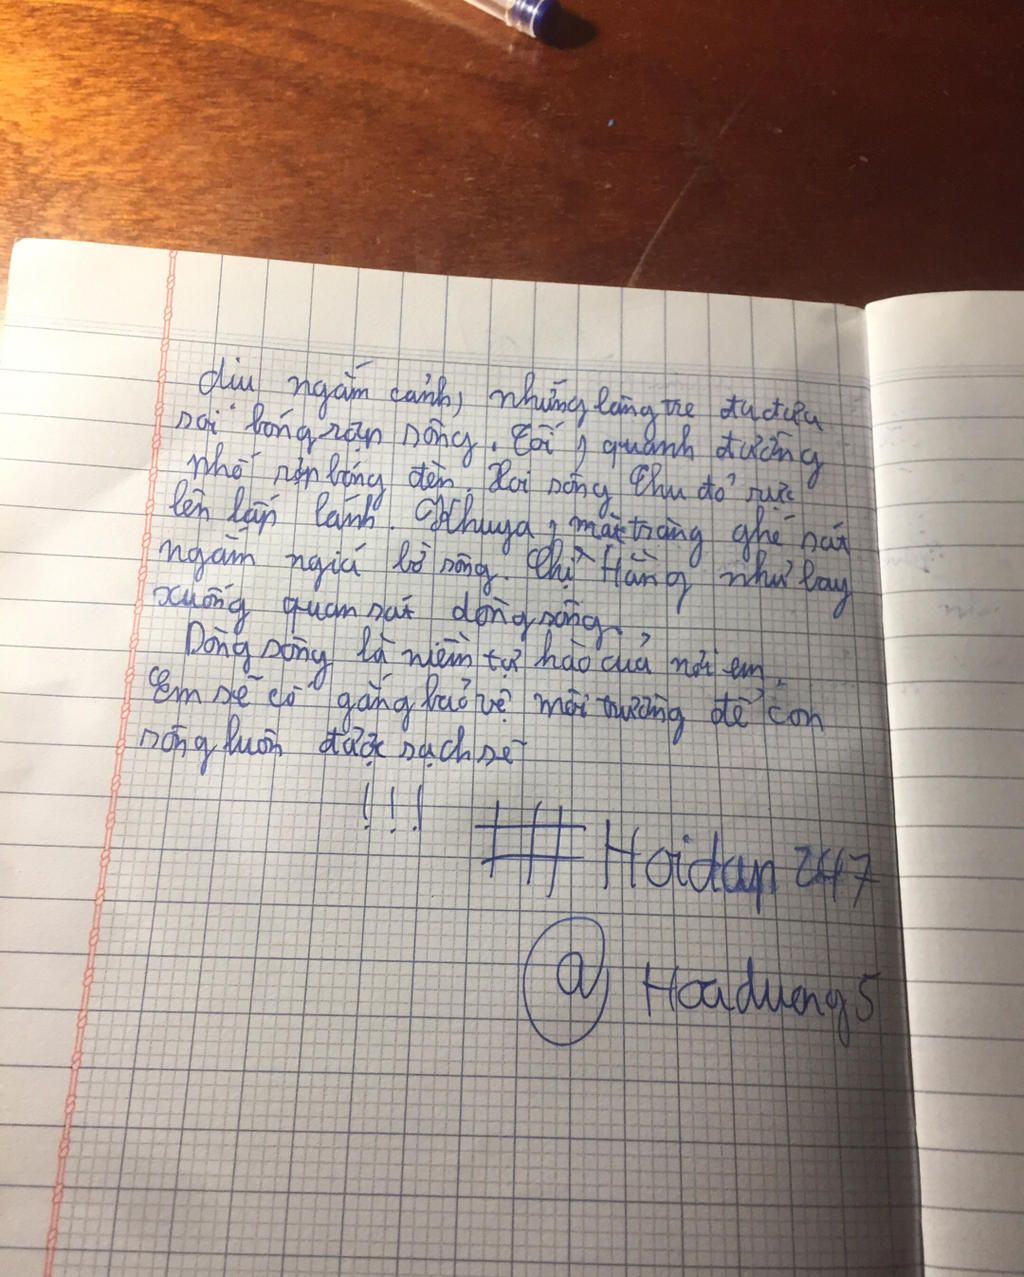 dìu ngắm cảnh, những làng tre đu đưa
soi bóng rặn sông. Tối, quanh đường
phố rợp bóng đèn. Roi sông Thu đỏ rực
lên lấp lánh. Khuya, mặt trăng ghé sát
ngắm ngiá bờ sông. Chị Hằng như bay
xuống quan sát dòng sông.
Dòng sông là niềm tự hào của nơi em.
Em sẽ cố gắng bảo vệ môi trường để con
sông luôn được sạch sẽ
!!!
# Hoidap 247
@ Hoaduong5